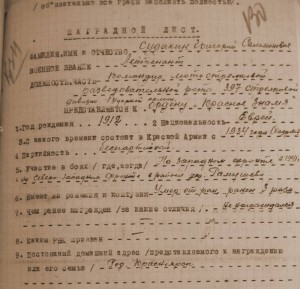 / обязательно все графы заполнять полностью/.
НАГРАДНОЙ ЛИСТ.
ФАМИЛИЯ, ИМЯ И ОТЧЕСТВО - Судакин Григорий
ВОЕННОЕ ЗВАНИЕ - Лейтенант
ДОЛЖНОСТЬ, ЧАСТЬ - Командир мотострелковой
разведовательной роты 397 стрелковой
дивизии
ПРЕДСТАВЛЯЕТСЯ К Ордену - Красное Знамя
1. Год рождения 1912 2 Национальность Еврей
3. С какого времени состоит в Красной Армии с 1934 года
4. Партийность - Беспартийный
5. Участие в боях /где, когда/ - На Западном фронте
на Северо-Западном фронте в районе
6. Имеет ли ранения и контузии - Умер от ран, ранен 3 раза
7. Чем ранее награжден /за какие отличия/ - Не награждался
8. Каким РВК призван
9. Постоянный домашний адрес /представляемого к награждению
или его семьи / Гор. Красноярск